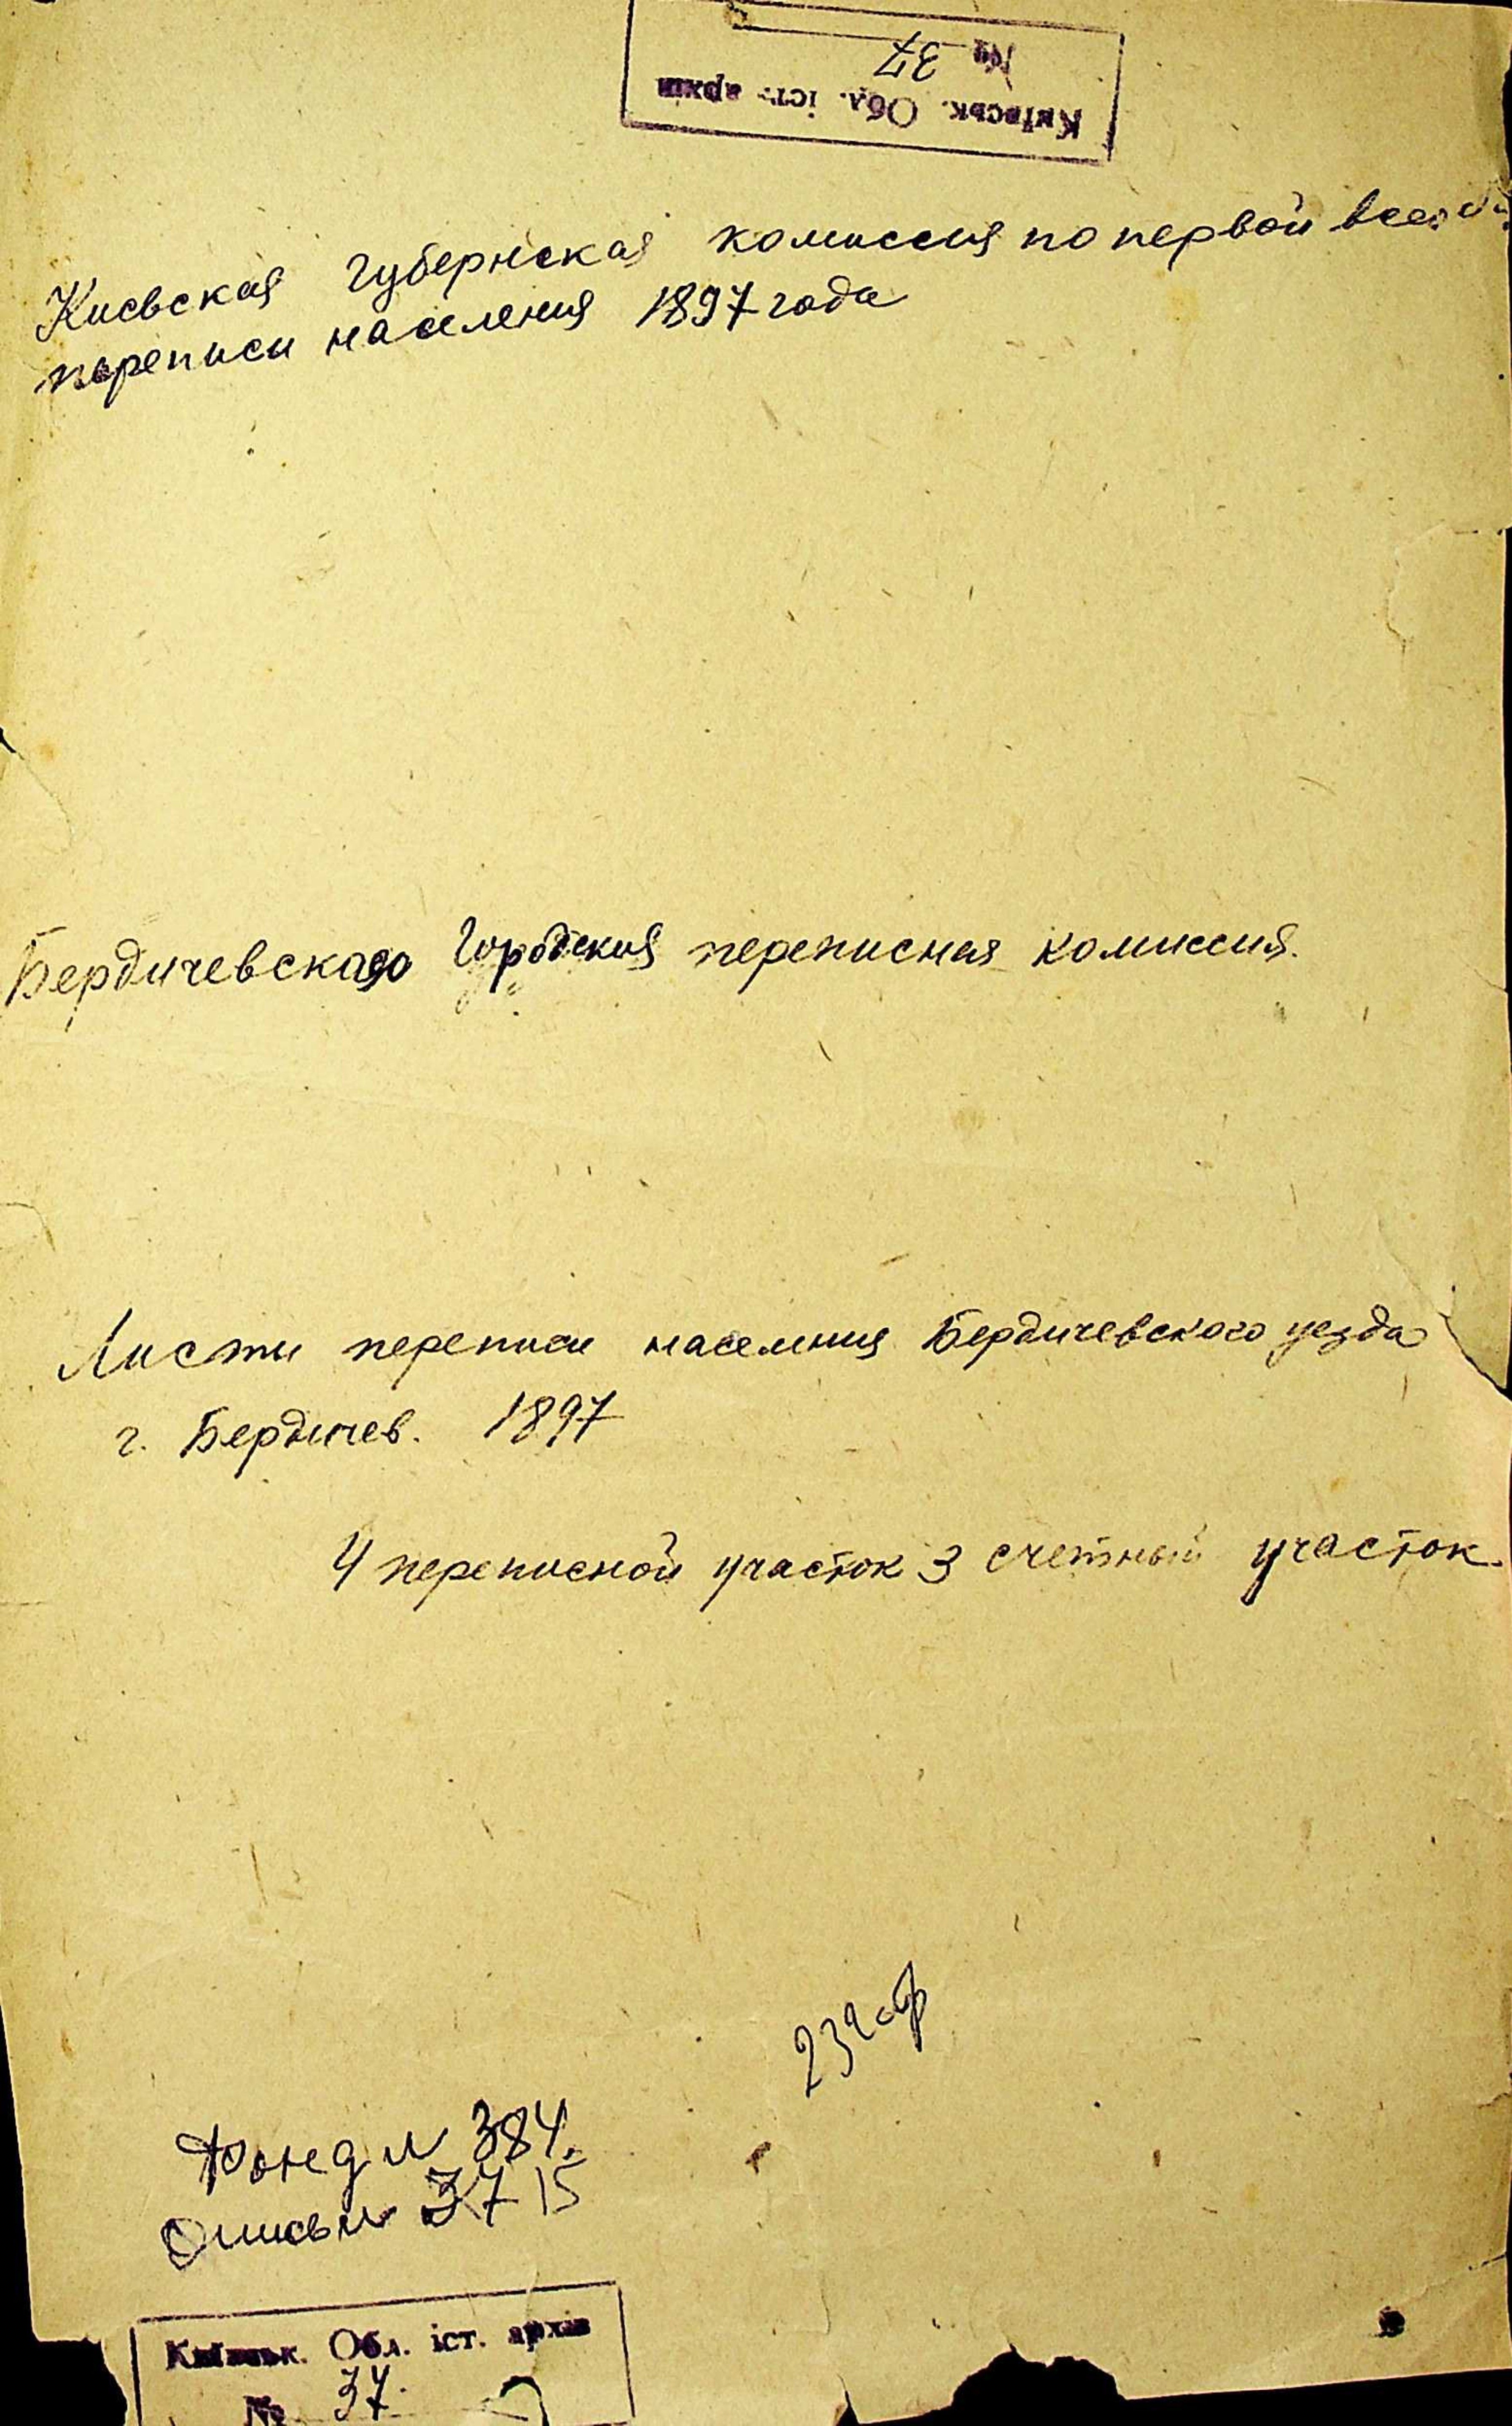 № 37
Київськ. Обл. іст. архів
Киевская губернская комиссия по первой
переписи населения 1897 года
Бердичевская Городская переписная комиссия.
Листы переписи населения Бердичевского уезда
г. Бердичев. 1897
4 переписной участок 3 счетный участок.
Фонд № 384.
Опись № 37 15
Київськ. Обл. іст. архів
№ 37.